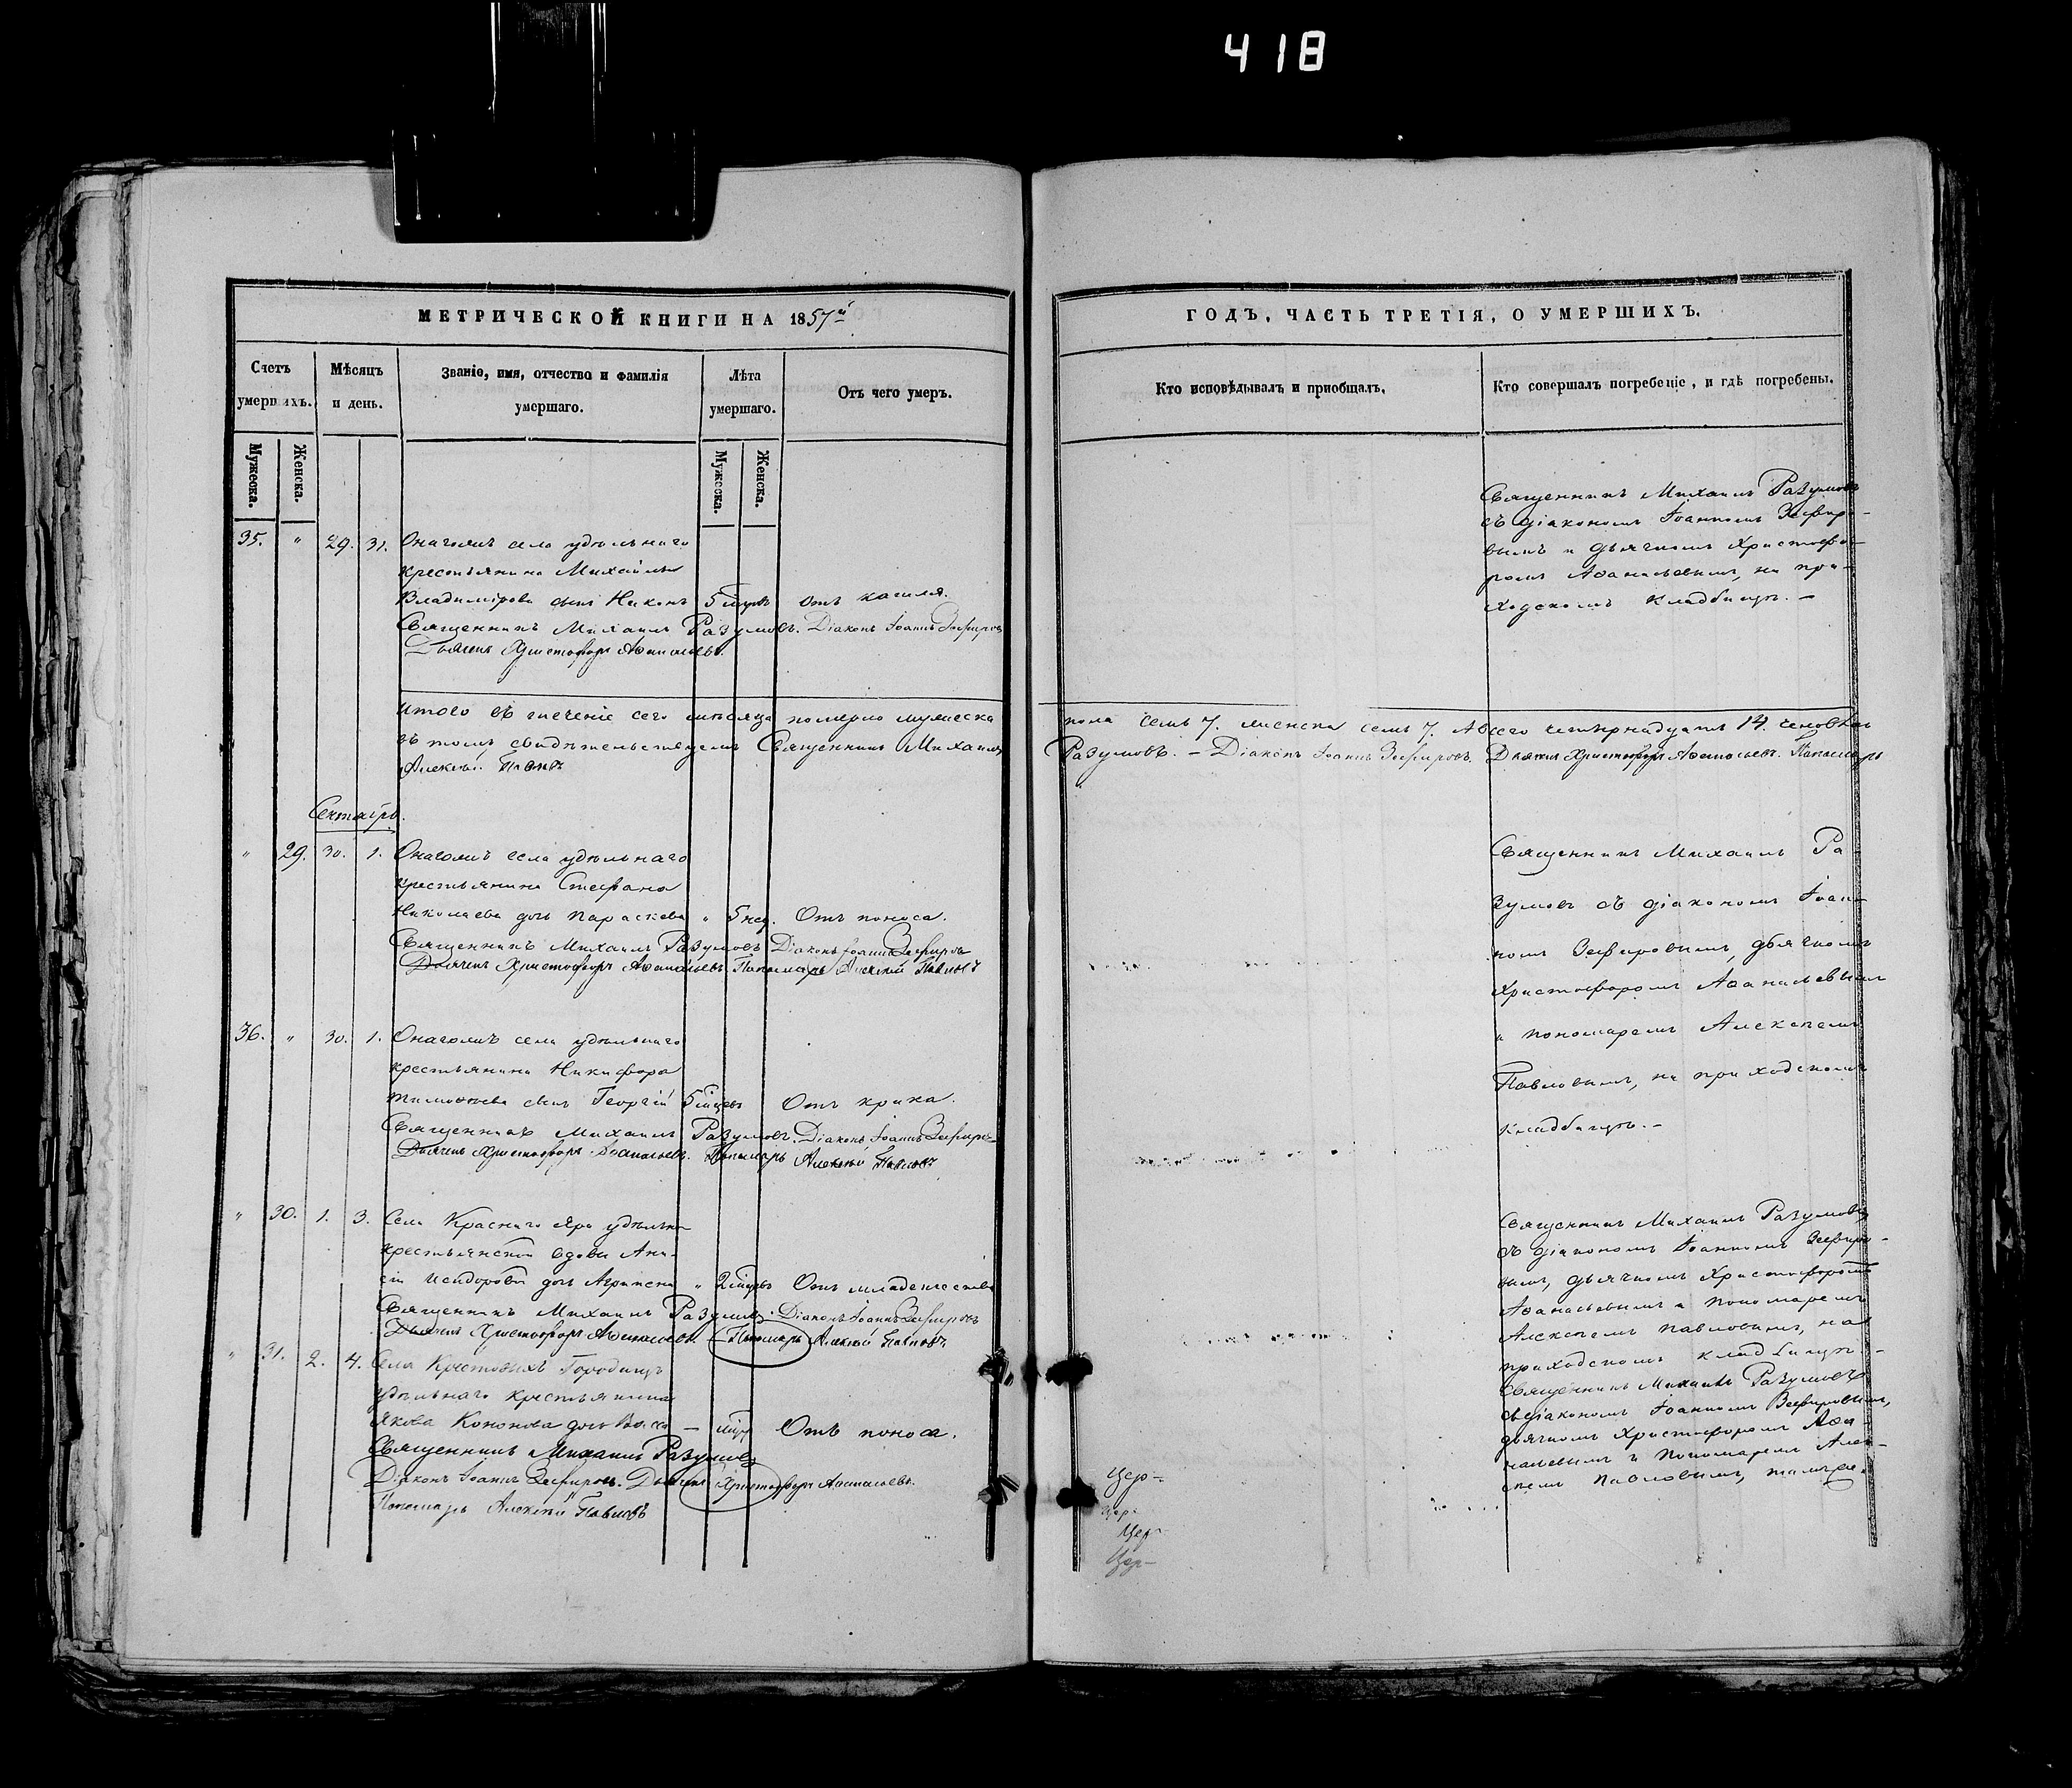 418
МЕТРИЧЕСКОЙ КНИГИ НА 1857й
Счетъ умершихъ.
Мѣсяцъ и день.
Званіе, имя, отчество и фамилія умершаго.
Лѣта умершаго.
Отъ чего умеръ.
Мужеска.
Женска.
Мужеска.
Женска.
35. " 29. 31. Оначоміъ села удѣльнаго
крестьянина Михаила
Владимірова сынъ Никонъ 5 отъ кашля.
Священникъ Михаилъ Разумовъ. Діаконъ Іоаннъ Зефировъ
Дьячекъ Христофоръ Аѳанасьевъ.
Итого въ теченіе сего мѣсяца померло мужеска
въ томъ свидѣтельствуемъ Священникъ Михаилъ
Алексѣй Павловъ
Сентябрь.
" 29. 30. 1. села удѣльнаго
крестьянина Стефана
Николаева дочь Параскева " 5 нед. Отъ поноса.
Священникъ Михаилъ Разумовъ Діаконъ Іоаннъ Зефировъ
Дьячекъ Христофоръ Аѳанасьевъ Пономарь Алексѣй Павловъ
36. " 30. 1. села удѣльнаго
крестьянина Никифора
Тимоѳеева сынъ Георгій 5 Отъ крика.
Священникъ Михаилъ Разумовъ. Діаконъ Іоаннъ Зефировъ
Дьячекъ Христофоръ Аѳанасьевъ. Пономарь Алексѣй Павловъ
" 30. 1. 3. Села Краснаго Яра удѣльной
крестьянской вдовы Ани-
сіи Исидоровой дочь Агрипена " 2 Отъ младенчества
Священникъ Михаилъ Разумовъ. Діаконъ Іоаннъ Зефировъ
Дьячекъ Христофоръ Аѳанасьевъ. Пономарь Алексѣй Павловъ
" 31. 2. 4. Села Крестовыхъ Городищъ
удѣльнаго крестьянина
Якова Кононова дочь Васса — Отъ поноса.
Священникъ Михаилъ Разумовъ
Діаконъ Іоаннъ Зефировъ. Дьячекъ Христофоръ Аѳанасьевъ.
Пономарь Алексѣй Павловъ
ГОДЪ, ЧАСТЬ ТРЕТІЯ, О УМЕРШИХЪ.
Кто исповѣдывалъ и приобщалъ.
Кто совершалъ погребеніе, и гдѣ погребены.
Священникъ Михаилъ Разумовъ
съ діакономъ Іоанномъ Зефиро-
вымъ и дьячкомъ Христофо-
ромъ Аѳанасьевымъ, на при-
ходскомъ кладбищѣ. —
пола семь 7. женска семь 7. А всего четырнадцать 14. человѣкъ
Разумовъ. — Діаконъ Іоаннъ Зефировъ. Дьячекъ Христофоръ Аѳанасьевъ. Пономарь
Священникъ Михаилъ Ра-
зумовъ съ діакономъ Іоан-
номъ Зефировымъ, дьячкомъ
Христофоромъ Аѳанасьевымъ
и пономаремъ Алексѣемъ
Павловымъ, на приходскомъ
кладбищѣ. —
Священникъ Михаилъ Разумовъ
съ діакономъ Іоанномъ Зефиро-
вымъ, дьячкомъ Христофоромъ
Аѳанасьевымъ и пономаремъ
Алексѣемъ Павловымъ, на
приходскомъ кладбищѣ -
Священникъ Михаилъ Разумовъ
съ діакономъ Іоанномъ Зефировымъ,
дьячкомъ Христофоромъ Аѳа-
насьевымъ и Пономаремъ Алек-
сѣемъ Павловымъ, тамъ же.
Цер-
Цер-
Цер-
Цер-